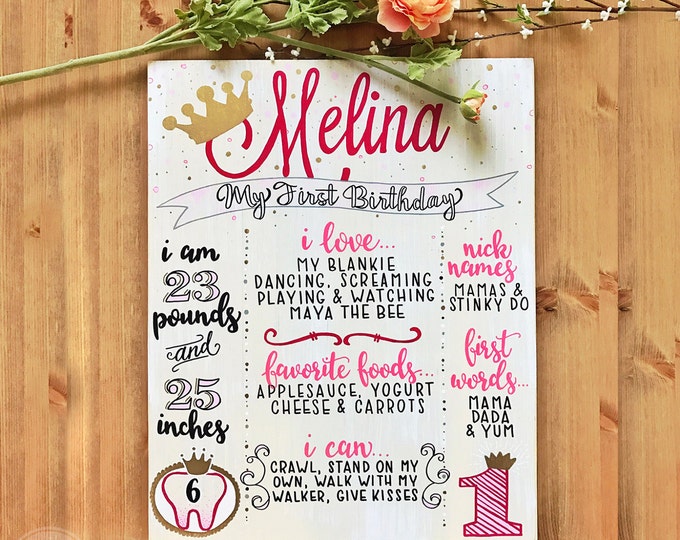 Melina
My First Birthday
i am
23
pounds
and
25
inches
6
i love...
MY BLANKIE
DANCING, SCREAMING
PLAYING & WATCHING
MAYA THE BEE
favorite foods...
APPLESAUCE, YOGURT
CHEESE & CARROTS
i can...
CRAWL, STAND ON MY
OWN, WALK WITH MY
WALKER, GIVE KISSES
nick
names
MAMAS &
STINKY DO
first
words...
MAMA
DADA
& YUM
1